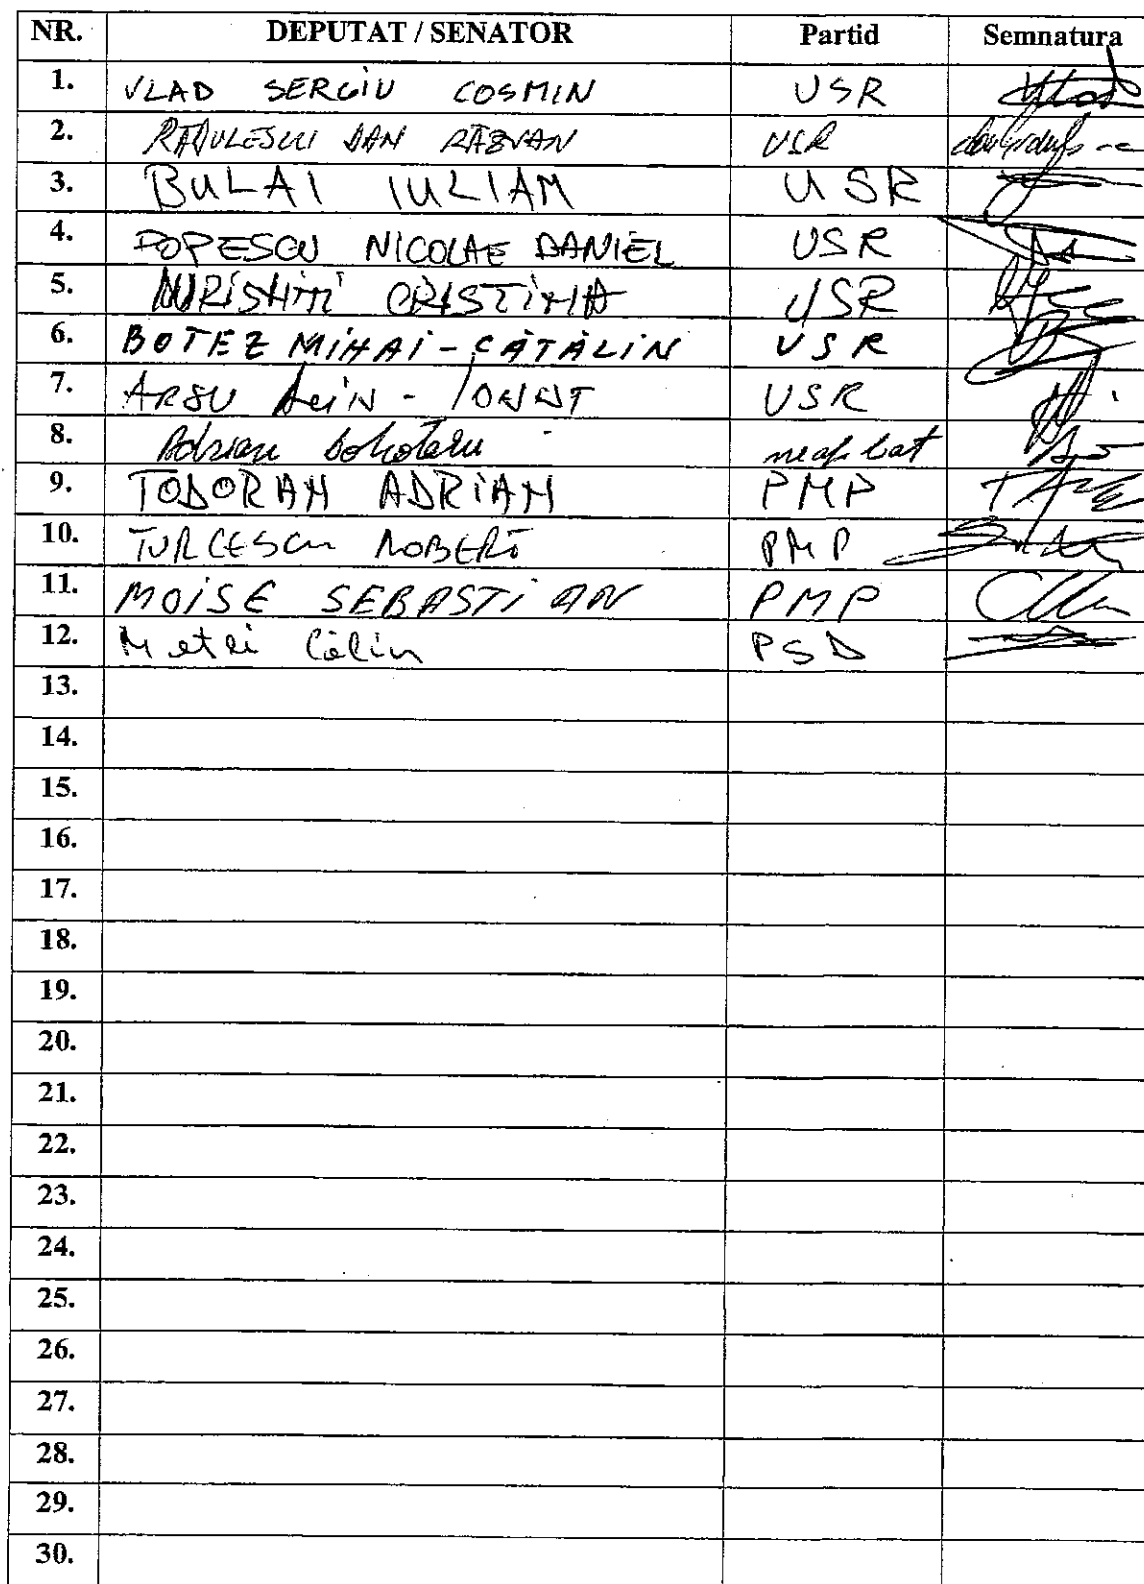 NR. DEPUTAT / SENATOR Partid Semnatura
1. VLAD SERGIU COSMIN USR Vlad
2. RĂDULESCU DAN RĂZVAN USR
3. BULAI IULIAN USR
4. POPESCU NICOLAE DANIEL USR
5. CRISTINA USR
6. BOTEZ MIHAI-CĂTĂLIN USR
7. USR
8. Adrian neafiliat
9. TODORAN ADRIAN PMP
10. TURCESCU ROBERT PMP
11. MOISE SEBASTIAN PMP
12. Călin PSD
13.
14.
15.
16.
17.
18.
19.
20.
21.
22.
23.
24.
25.
26.
27.
28.
29.
30.